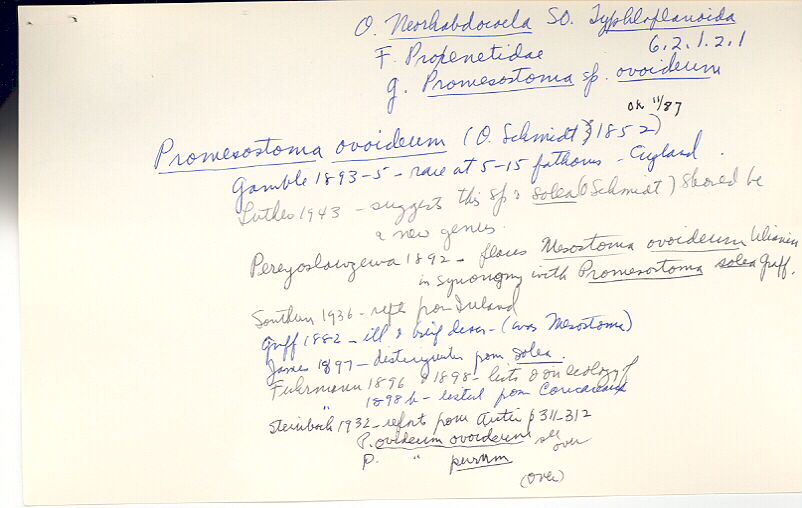 O. Neorhabdocoela SO. Typhloplanoida
F. Proxenetidae 6.2.1.2.1
g. Promesostoma sp. ovoideum
OK 11/87
Promesostoma ovoideum (O. Schmidt, 1852)
Gamble 1893-5 - rare at 5-15 fathoms - England.
Luther 1943 - suggests this sp & solea (O Schmidt) should be
a new genus.
Pereyoslawzewa 1892 - places Mesostoma ovoideum Uljanin
in synonymy with Promesostoma solea Graff.
Southern 1936 - reft from Ireland
Graff 1882 - ill & brief descr - (as Mesostoma)
1897 - distinguishes from solea.
Fuhrmann 1896 & 1898 - lists & on ecology of
" 1898 b - listed from Concarneau
Steinböck 1932 - reports from p 311-312
P. ovideum ovoideum see
over
P. " purum
(over)